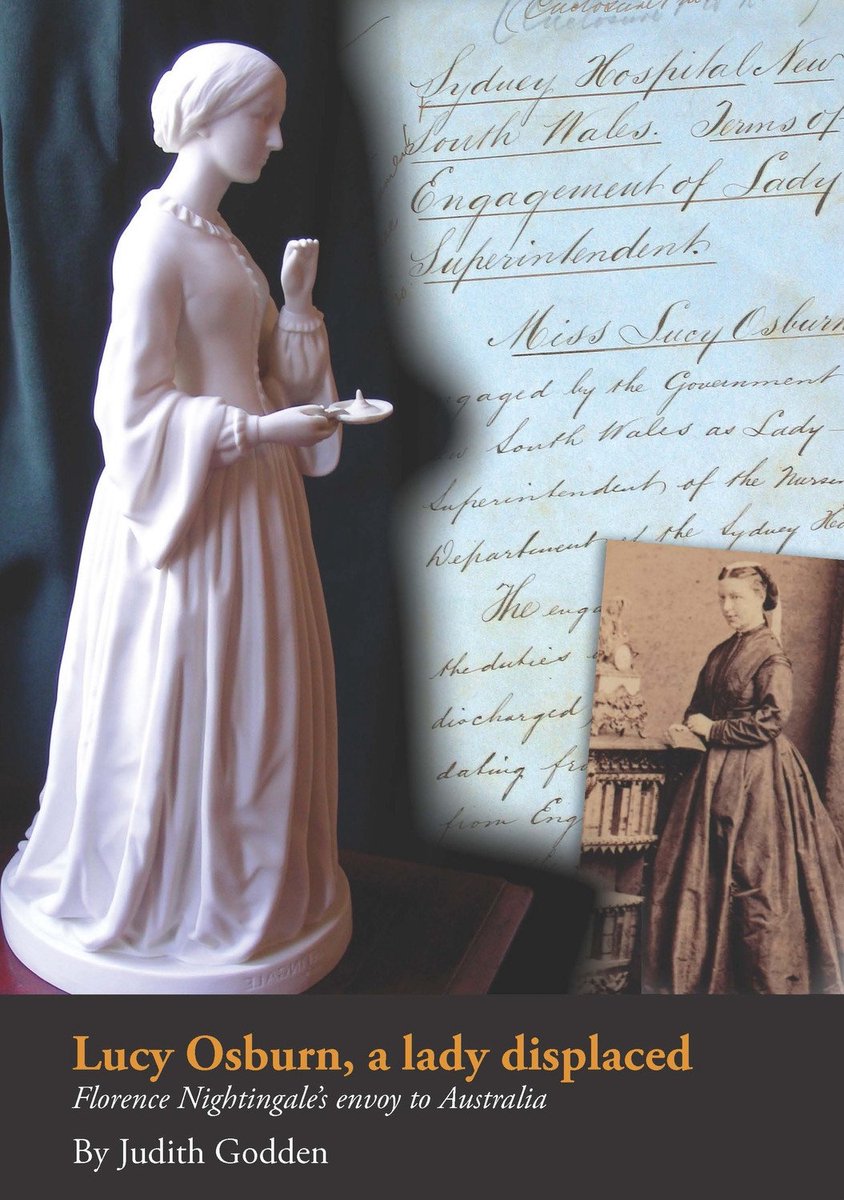 Sydney Hospital New
South Wales. Terms of
Engagement of Lady
Superintendent.
Miss Lucy Osburn
engaged by the Government
South Wales as Lady-
Superintendent of the
Department of the Sydney
The
the duties
discharged
dating
from
Lucy Osburn, a lady displaced
Florence Nightingale's envoy to Australia
By Judith Godden